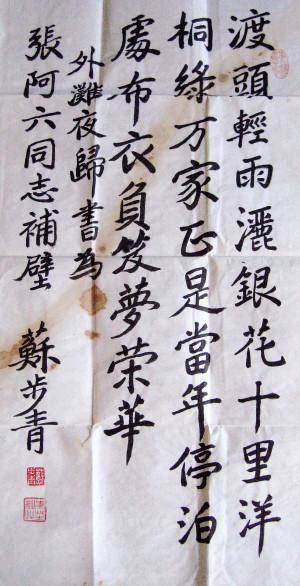 渡頭輕雨灑銀花十里洋
桐綠万家正是當年停泊
處布衣負笈夢荣華
外灘夜歸書為
張阿六同志補壁
蘇步青